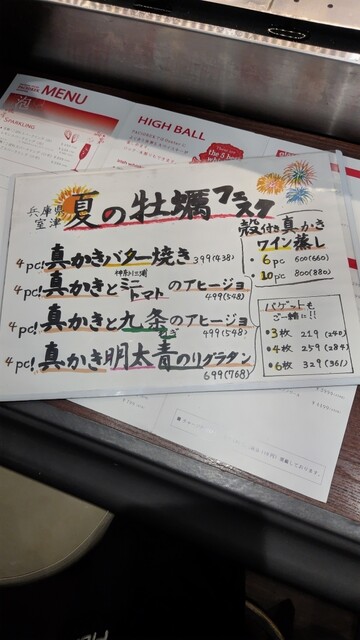 MENU
SPARKLING
HIGH BALL
兵庫県
室津
夏の牡蠣フェスタ
4pc! 真かきバター焼き 399(438)
神奈川三浦
4pc! 真かきとミニトマトのアヒージョ
499(548)
4pc! 真かきと九条ネギのアヒージョ
499(548)
4pc! 真かき明太青のりグラタン
699(768)
殻付き真かき
ワイン蒸し
・6pc 600(660)
・10pc 800(880)
バゲットも
ご一緒に!!
・3枚 219(240)
・4枚 259(284)
・6枚 329(361)